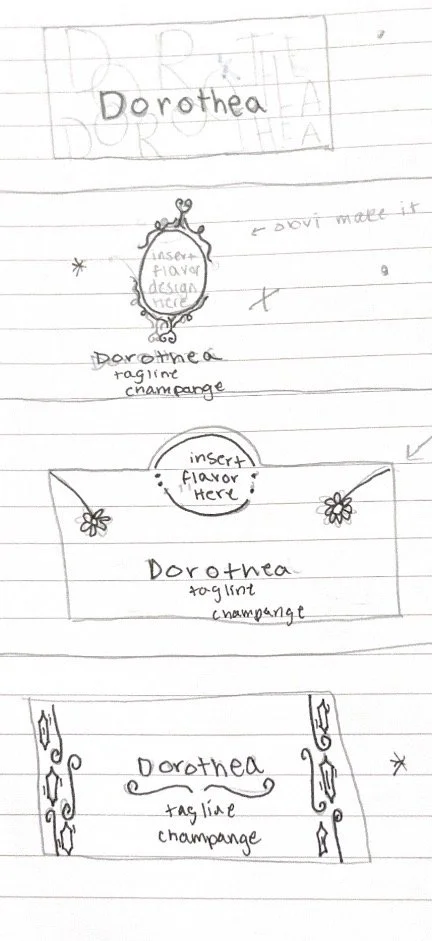 DOROTHEA
Dorothea
DOROTHEA
← obvi make it
insert
flavor
design
Here
Dorothea
tagline
champange
insert
flavor
Here
Dorothea
tagline
champange
Dorothea
tagline
champange